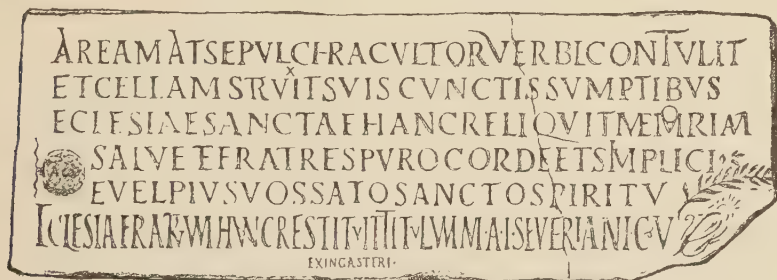 AREAM AT SEPVLCHRA CVLTOR VERBI CONTVLIT
ET CELLAM STRVXIT SVIS CVNCTIS SVMPTIBVS
ECLESIAE SANCTAE HANC RELIQVIT MEMORIAM
SALVETE FRATRES PVRO CORDE ET SIMPLICI
EVELPIVS VOS SATOS SANCTO SPIRITV
ECLESIA FRATRVM HVNC RESTITVIT TITVLVM M·A·I·SEVERIANI C·V
EX ING ASTERI·